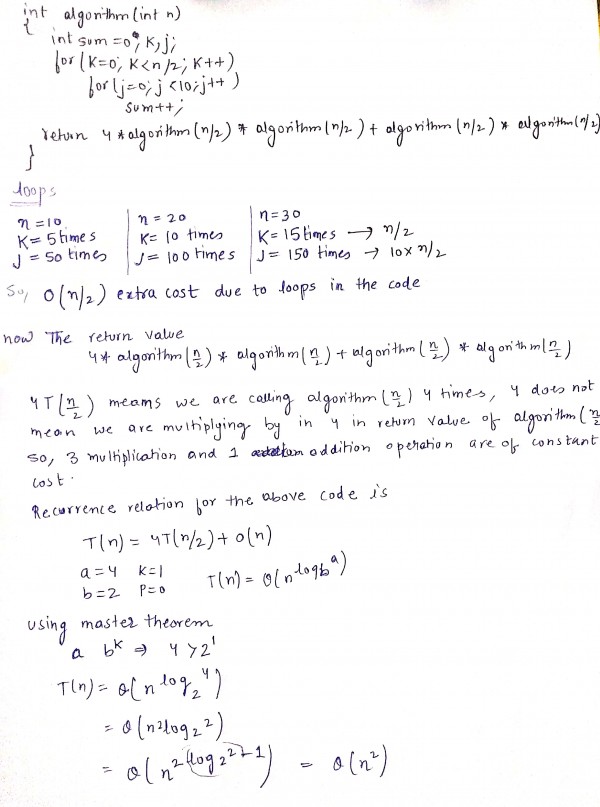 int algorithm(int n)
{
int sum=0, K,j;
for(K=0; K<n/2; K++)
for(j=0; j<10; j++)
sum++;
return 4*algorithm(n/2) * algorithm(n/2) + algorithm(n/2) * algorithm(n/2)
}
loops
n=10 n=20 n=30
K=5times K=10 times K=15times → n/2
J=50 times J=100times J=150 times → 10×n/2
So, O(n/2) extra cost due to loops in the code
now The return value
4* algorithm(n/2) * algorithm(n/2) + algorithm(n/2) * algorithm(n/2)
4T(n/2) means we are calling algorithm(n/2) 4 times, 4 does not
mean we are multiplying by in 4 in return value of algorithm(n/2
so, 3 multiplication and 1 addition operation are of constant
cost.
Recurrence relation for the above code is
T(n) = 4T(n/2)+O(n)
a=4 K=1 T(n)=O(n^logb^a)
b=2 P=0
using master theorem
a b^k ⇒ 4>2^1
T(n)= O(n^log_2^4)
= O(n^2log_2^2)
= O(n^2(log_2^2=1)) = O(n^2)